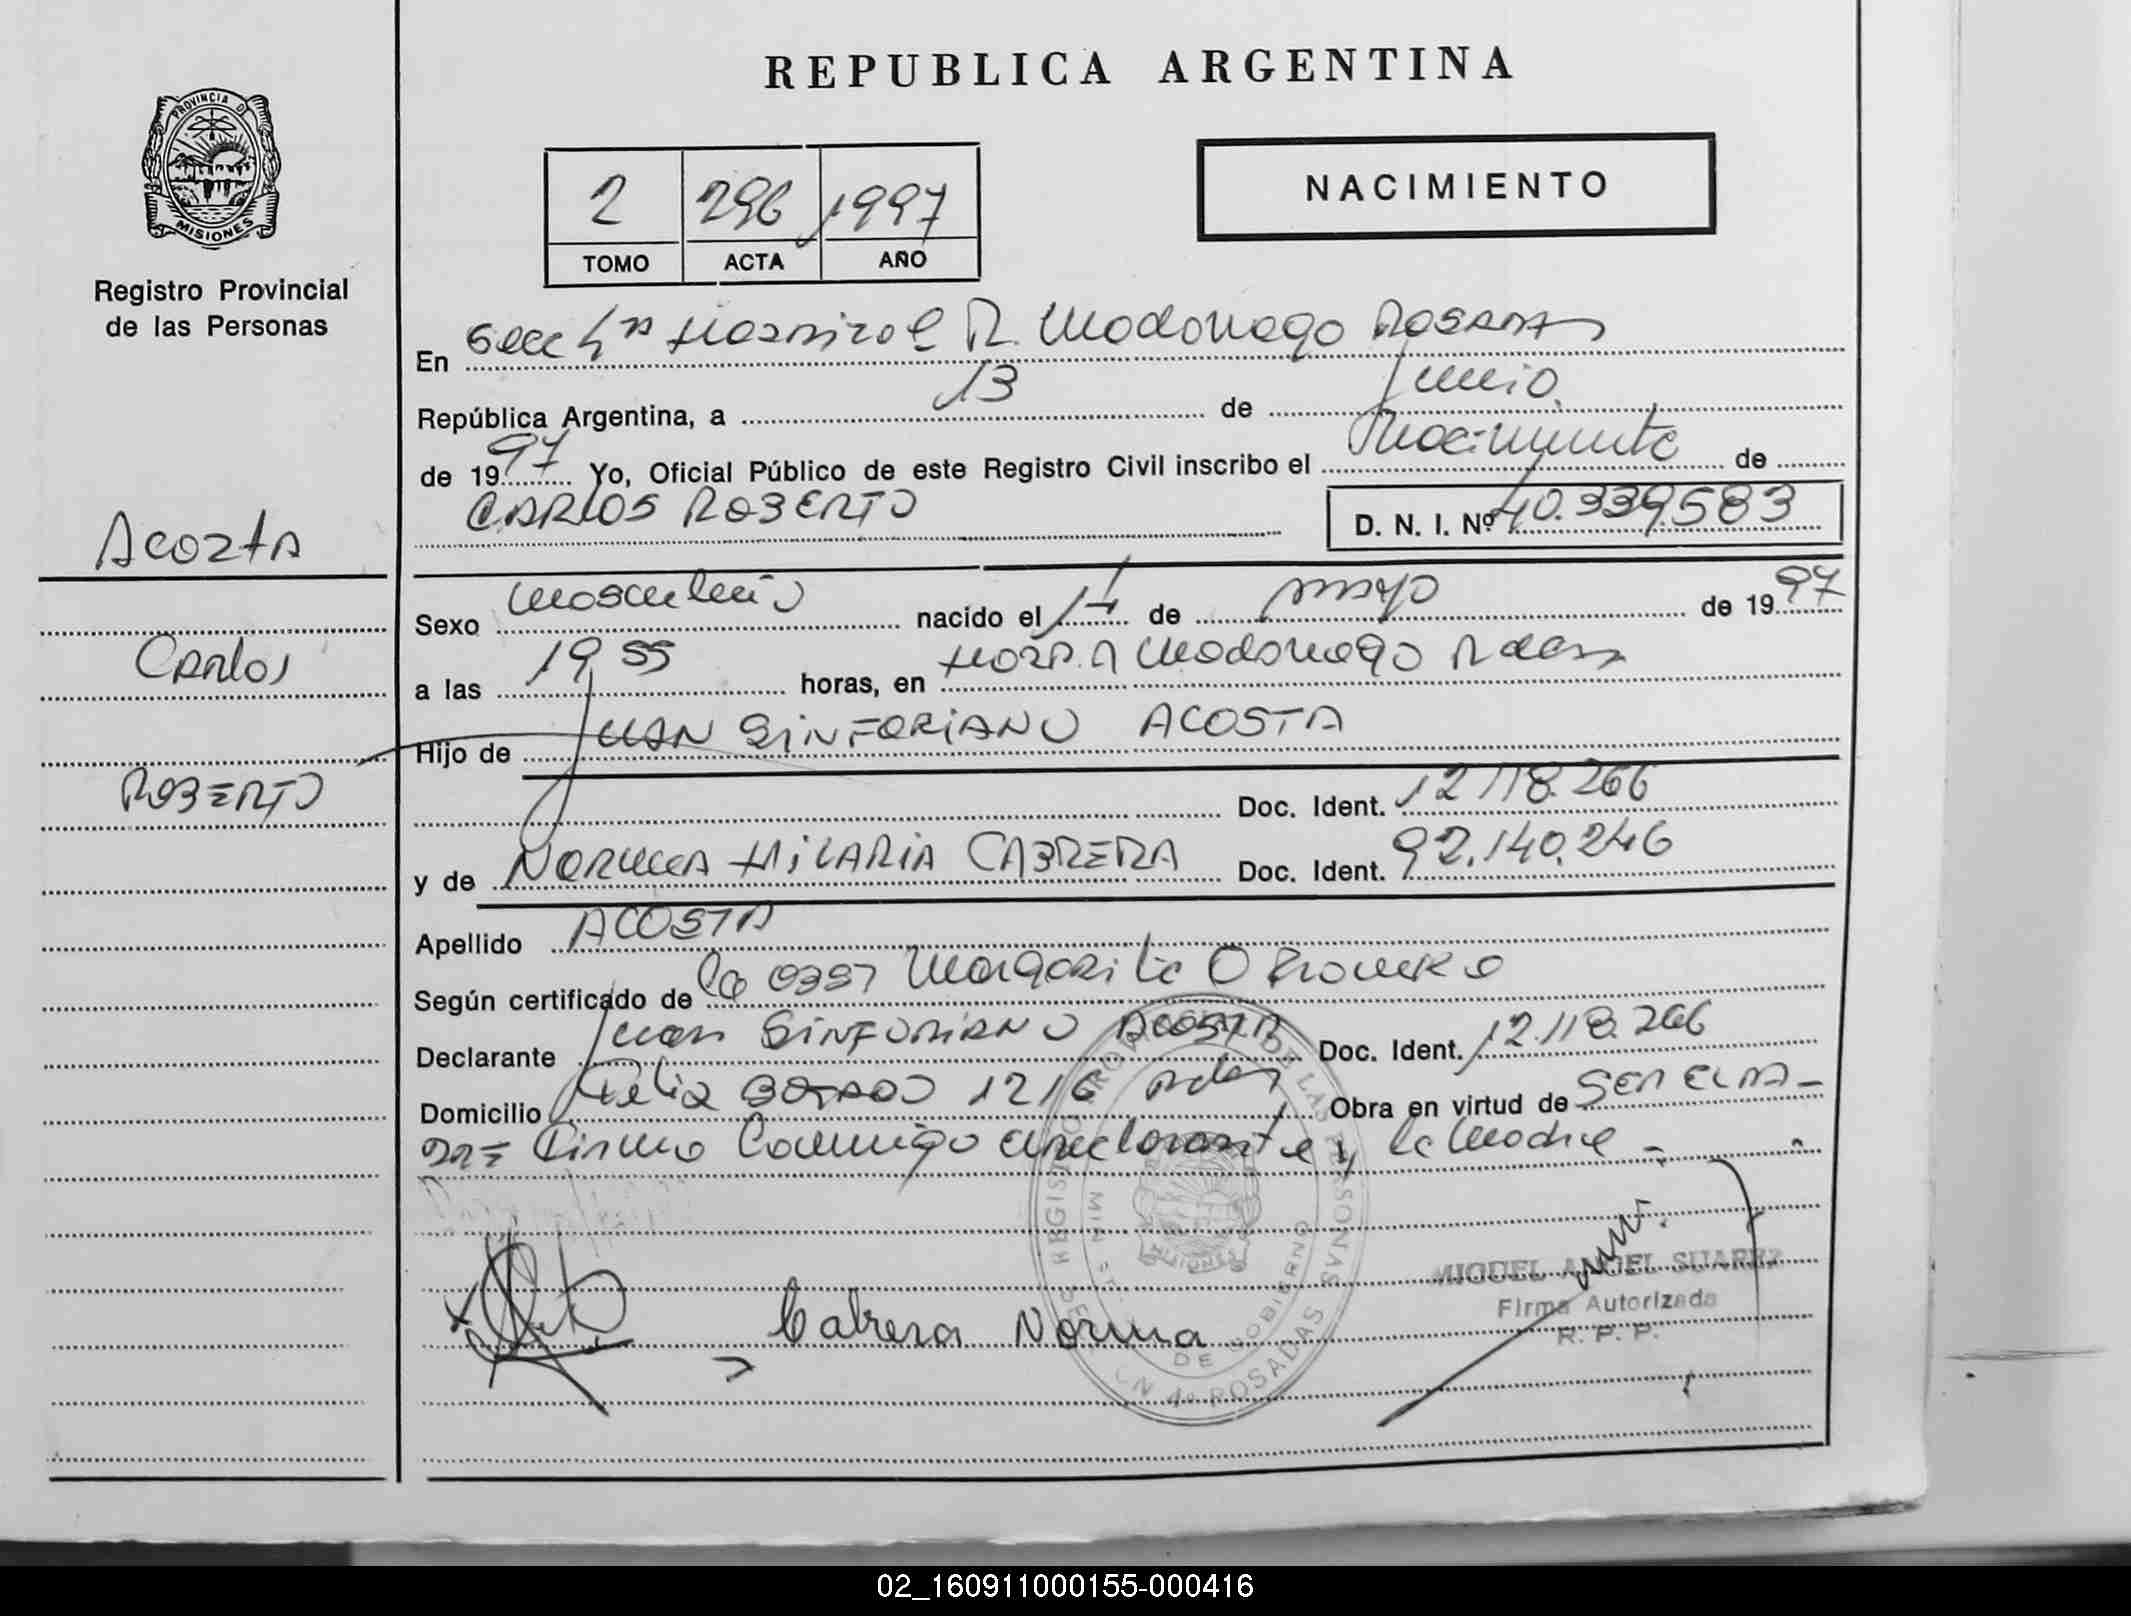 REPUBLICA ARGENTINA
PROVINCIA D
MISIONES
Registro Provincial
de las Personas
2 296 1997
TOMO ACTA AÑO
NACIMIENTO
En Secc 4ta R. Madariaga Posadas
República Argentina, a 13 de Junio
de 1997 Yo, Oficial Público de este Registro Civil inscribo el Nacimiento de
CARLOS ROBERTO D. N. I. Nº 40.339.583
Acosta
Carlos
ROBERTO
Sexo masculino nacido el 14 de mayo de 1997
a las 19,55 horas, en Hosp. R Madariaga Pdas
Hijo de JUAN SINFORIANO ACOSTA
Doc. Ident. 12.118.266
y de NORMA HILARIA CABRERA Doc. Ident. 92.140.246
Apellido ACOSTA
Según certificado de la Margarita
Declarante Juan SINFORIANO ACOSTA Doc. Ident. 12.118.266
Domicilio Felix 1216 Pdas Obra en virtud de SER EL PA-
DRE Firma Conmigo el declarante y la Madre -
Cabrera Norma
MIGUEL ANGEL SUAREZ
Firma Autorizada
R. P. P.
REGISTRO PROVINCIAL DE LAS PERSONAS
DE GOBIERNO
MISIONES
4º POSADAS
02_160911000155-000416